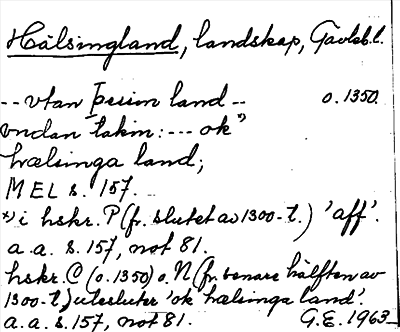 Hälsingland, landskap, Gävleb.l.
-- vtan þessin land -- o. 1350.
vndan takin: --- ok *)
hælsinga land;
MEL s. 157.
*) i hskr. P (fr. slutet av 1300-t.) 'aff'.
a.a. s. 157, not 81.
hskr. C (o. 1350) o. N (fr. senare hälften av
1300-t.) utesluter 'ok hælsinga land'.
a.a. s. 157, not 81. G.E. 1963